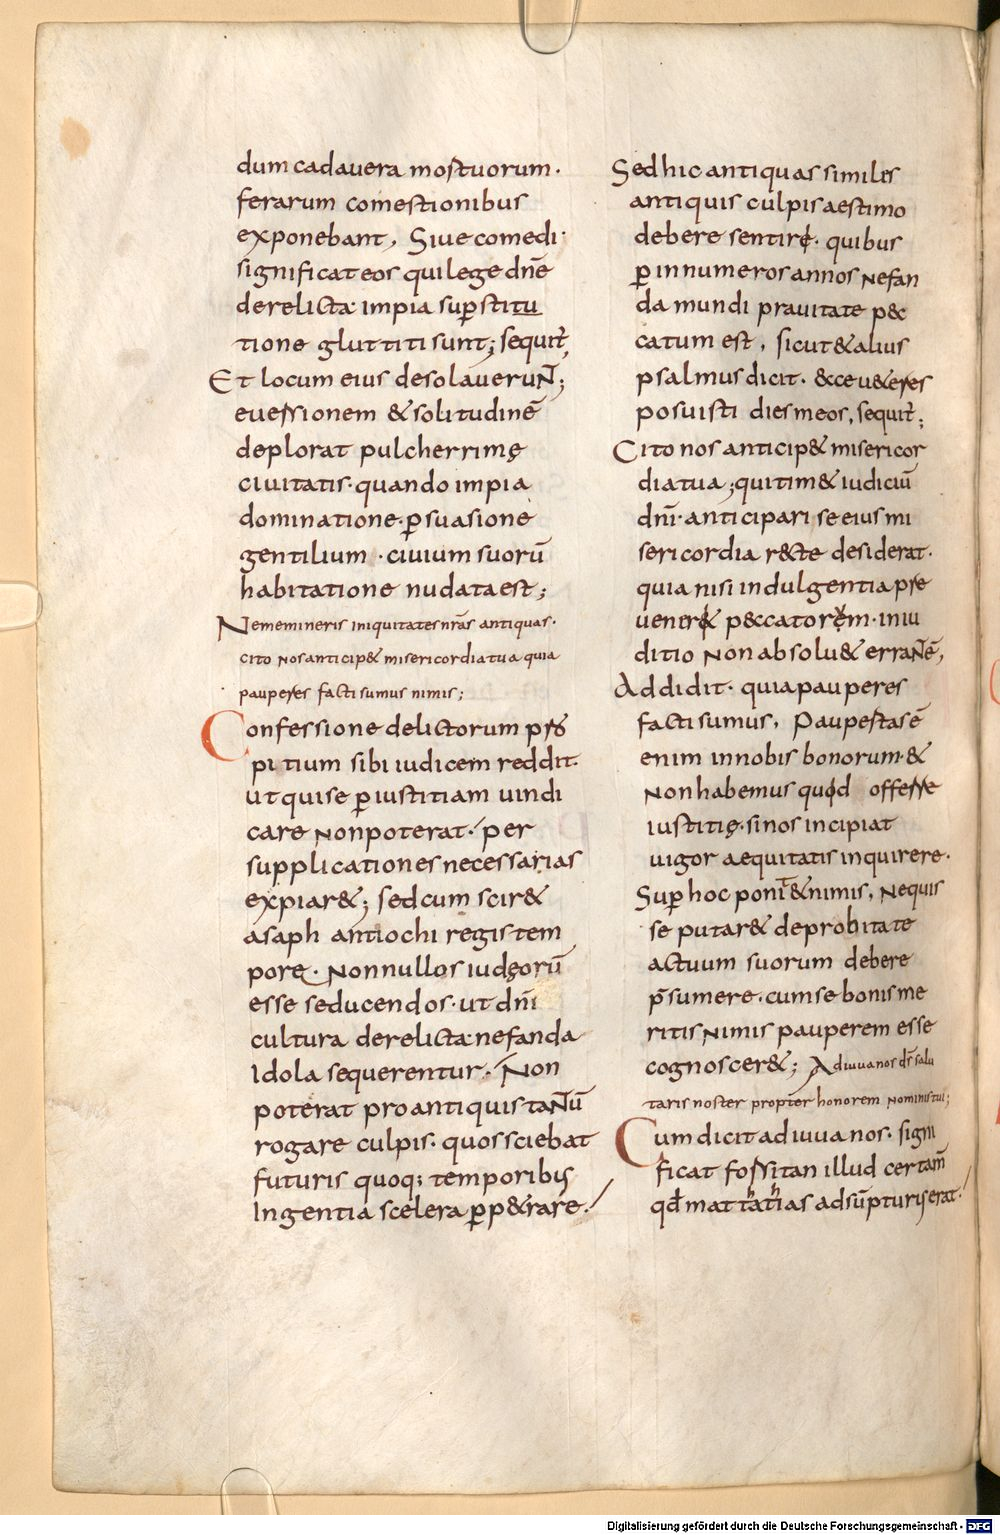 dum cadauera mortuorum.
ferarum comestionibus
exponebant, Siue comedi
significat eos qui lege dnē
derelicta impia suꝑstitu
tione gluttiti sunt; sequit̄,
Et locum eius desolauerunt;
euersionem & solitudinē
deplorat pulcherrimę
ciuitatis. quando impia
dominatione ꝑsuasione
gentilium . ciuium suorū
habitatione nudata est;
Ne memineris iniquitates nrās antiquas.
cito nos anticip& misericordia tua quia
pauperes facti sumus nimis;
Confessione delictorum pro
pitium sibi iudicem reddit.
ut qui se ꝑ iustitiam uindi
care non poterat. per
supplicationes necessarias
expiar&; sed cum scir&
asaph antiochi regis tem
pore. Non nullos iudęorū
esse seducendos. ut dnī
cultura derelicta nefanda
Idola sequerentur. Non
poterat pro antiquis tantū
rogare culpis. quos sciebat
futuris quoq; temporibus
Ingentia scelera ꝑp&rare.
Sed hic antiquas similis
antiquis culpis aestimo
debere sentire. quibus
ꝑ innumeros annos nefan
da mundi prauitate p&c
catum est, sicut & alius
psalmus dicit. & ce u&eres
posuisti dies meos, sequit̄;
Cito nos anticip& misericor
dia tua; qui tim& iudiciū
dnī. anticipari se eius mi
sericordia r&cte desiderat.
quia nisi indulgentia pre
uener& p&ccatorem. in iu
ditio non absolu& errantē,
Addidit. quia pauperes
facti sumus, Paupertas ē
enim in nobis bonorum &
non habemus quod offerre
iustitię. si nos incipiat
uigor aequitatis inquirere.
Suꝑ hoc ponit & nimis, Ne quis
se putar& de probitate
actuum suorum debere
p̄sumere. cum se bonis me
ritis nimis pauperem esse
cognoscer&; Adiuua nos d̄s salu
taris noster propter honorem nominis tui;
Cum dicit adiuua nos. signi
ficat forsitan illud certam̄
qd̄ mattathias adsūpturus erat.
Digitalisierung gefördert durch die Deutsche Forschungsgemeinschaft - DFG